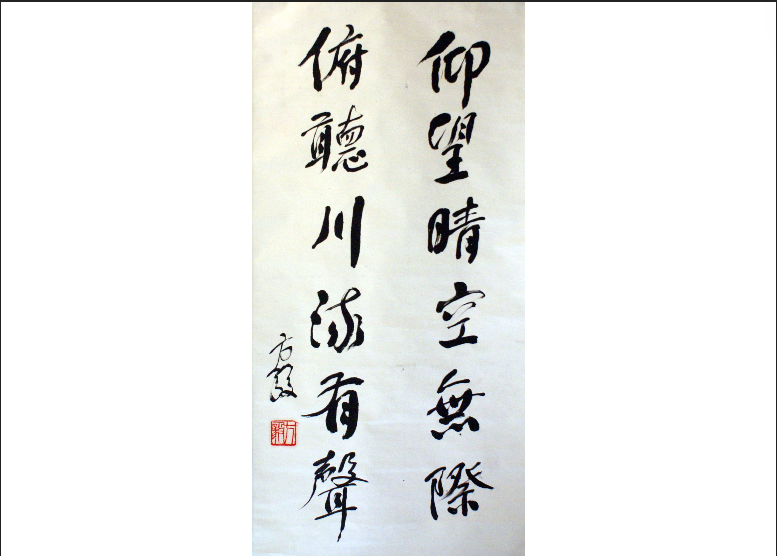 仰望晴空無際
俯聽川流有聲
方毅